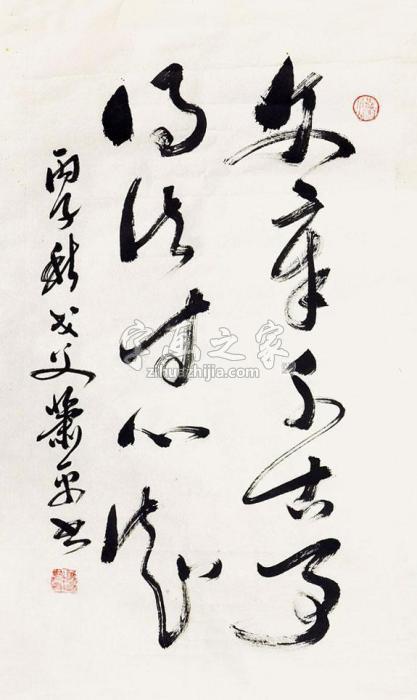 文章千古事
得失寸心知
丙子秋戈父蕭平書
字画之家
zihuazhijia.com